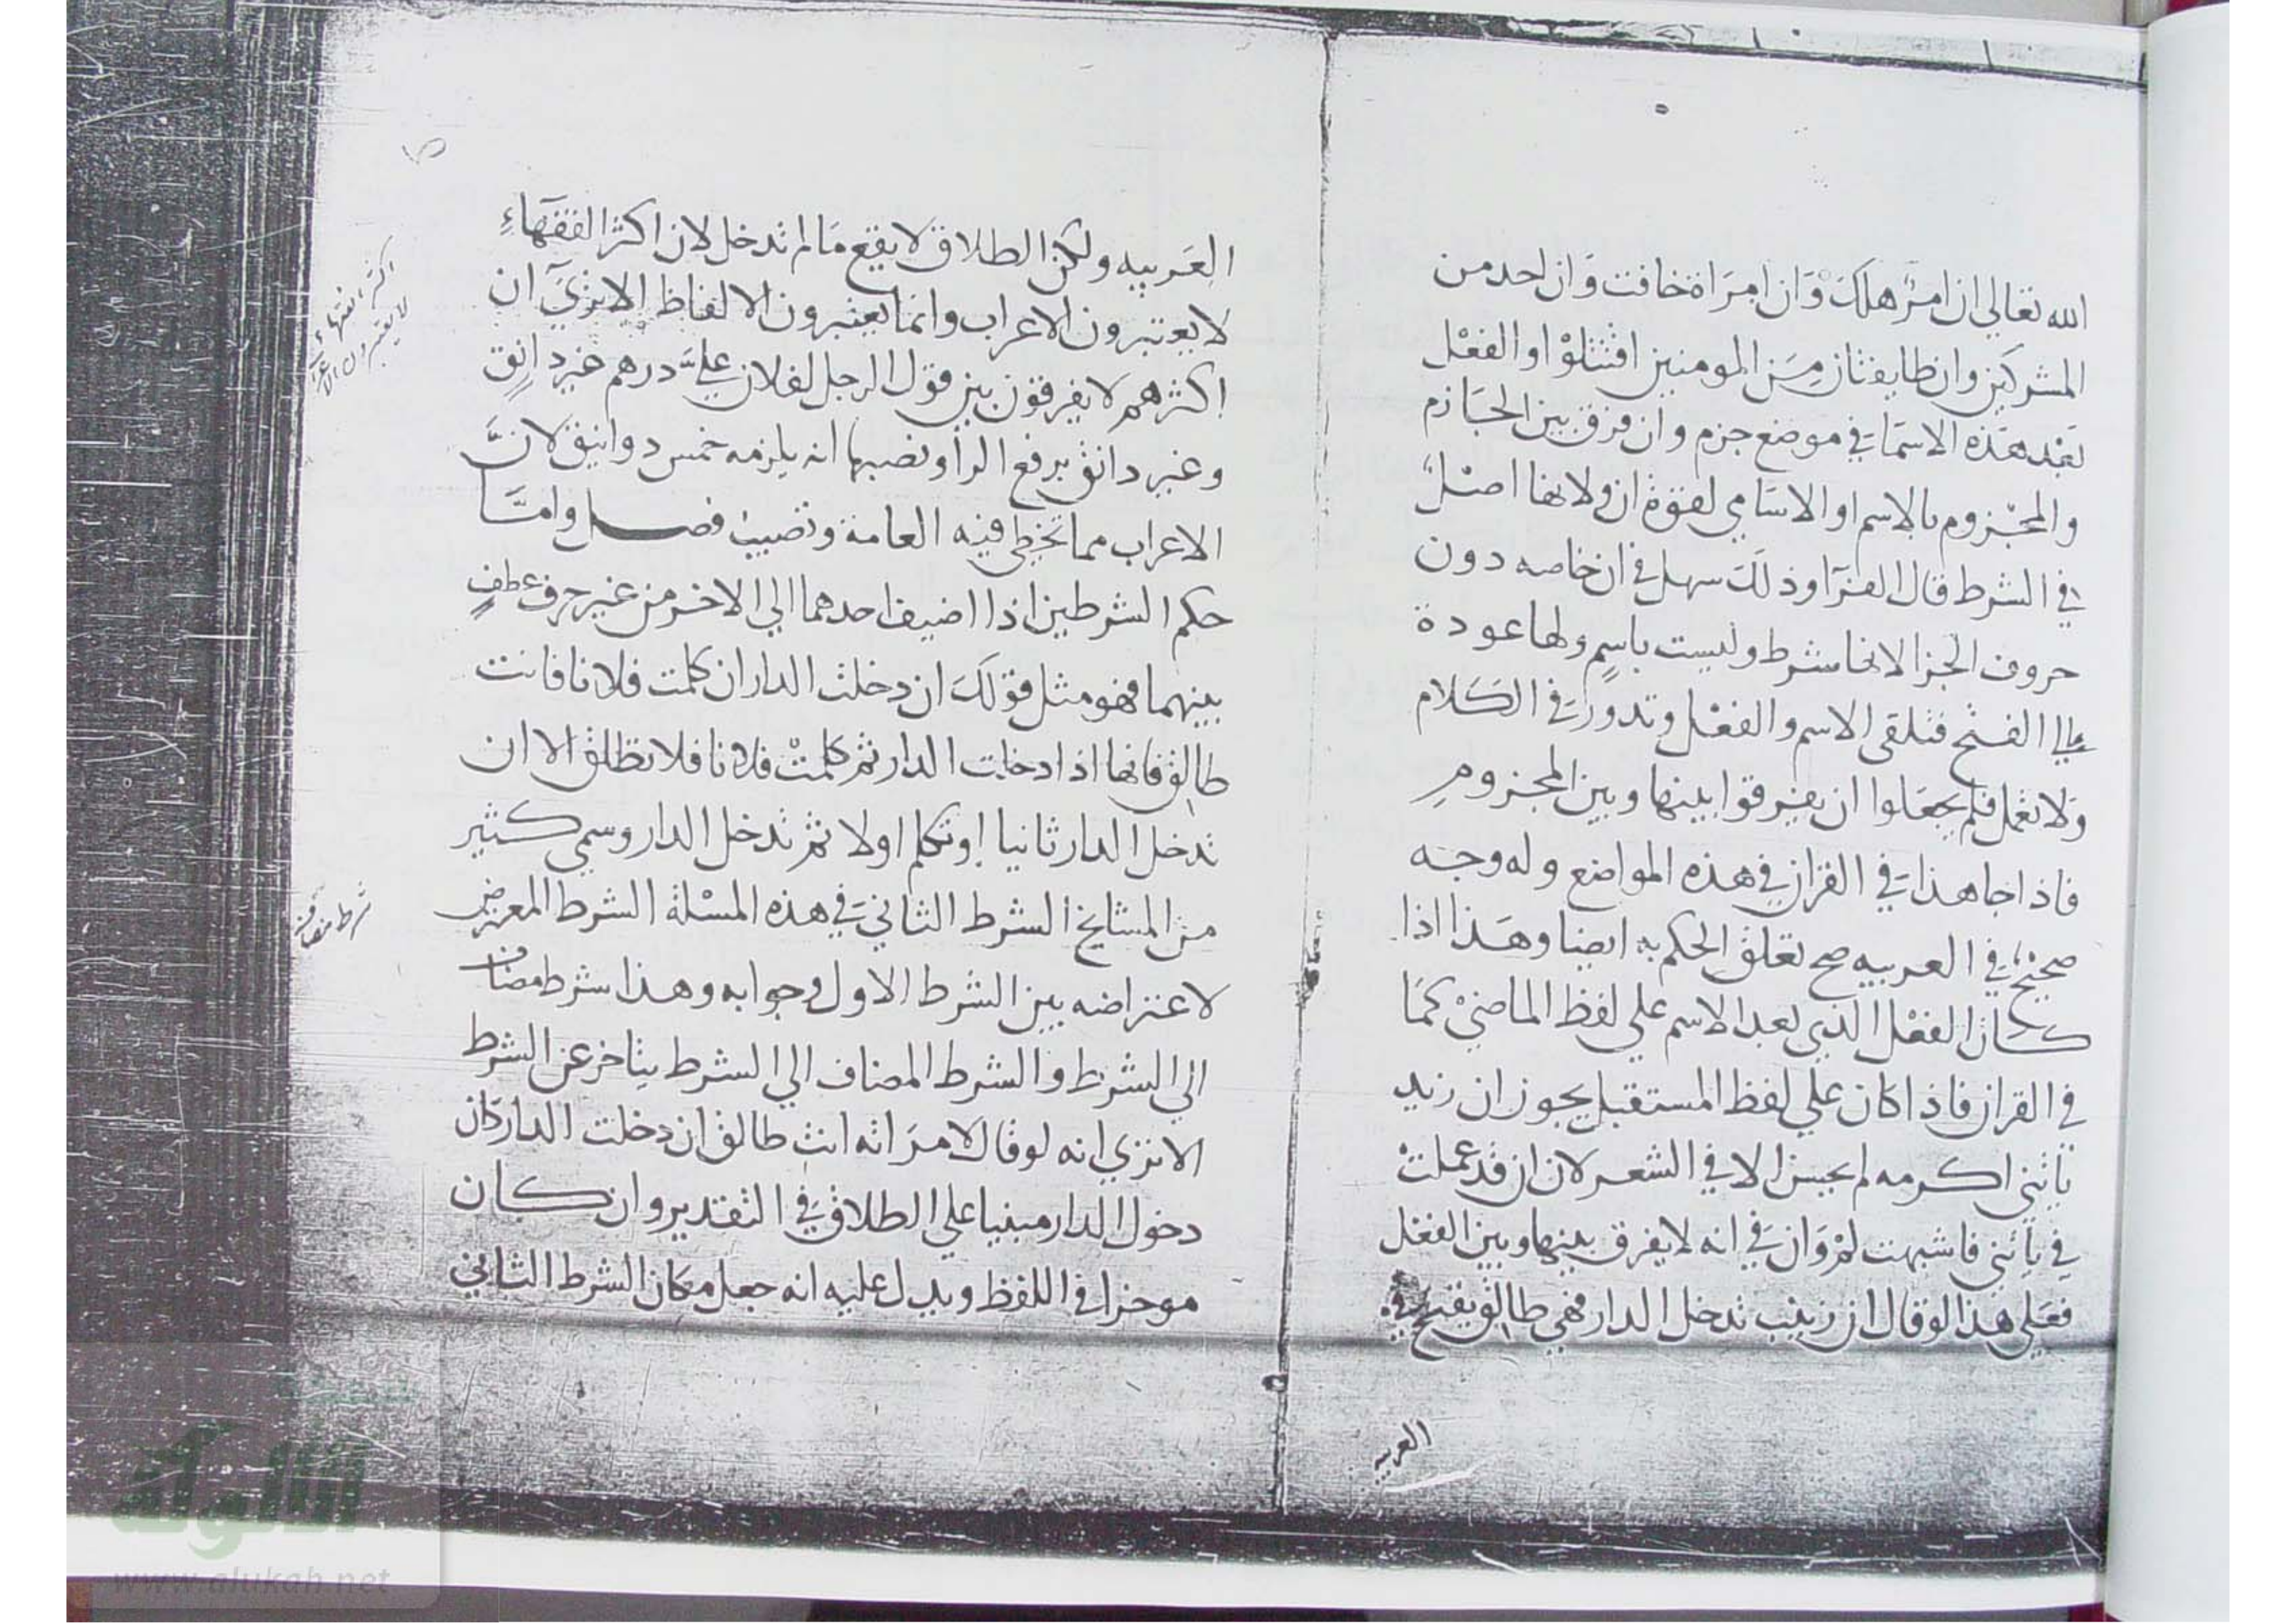 الله تعالى ان امرؤ هلك وان امراة خافت وان احد من
المشركين وان طايفتان من المومنين اقتتلوا والفعل
بعد هذه الاسما في موضع جزم وان فرق بين الجازم
والمجزوم بالاسم او الاسامي لقوة ان ولانها اصل
في الشرط قال الفرا وذلك سهل في ان خاصه دون
حروف الجزا لانها شرط وليست باسم ولها عودة
الي الفتح فتلقى الاسم والفعل وتدور في الكلام
ولا تعمل فلم يجعلوا ان يفرقوا بينها وبين المجزوم
فاذا جا هذا في القران في هذه المواضع وله وجه
صحيح في العربيه صح تعلق الحكم به ايضا وهذا اذا
كان الفعل الذي بعد الاسم على لفظ الماضي كما
في القران فاذا كان علي لفظ المستقبل يجوز ان زيد
ياتني اكرمه لم يحسن الا في الشعر لان ان قد عملت
في ياتني فاشبهت لم وان في انه لا يفرق بينها وبين الفعل
فعلى هذا لو قال ان زينب تدخل الدار فهي طالق يقبح في
العربيه
العربيه ولكن الطلاق لا يقع ما لم تدخل لان اكثر الفقهاء
لا يعتبرون الاعراب وانما يعتبرون الالفاظ الا تري ان
اكثرهم لا يفرقون بين قول الرجل لفلان علي درهم غير دانق
وغير دانق برفع الرا ونصبها انه يلزمه خمس دوانيق لان
الاعراب مما تخطي فيه العامة وتصيب فصل واما
حكم الشرطين اذا اضيف احدهما الي الاخر من غير حرف عطف
بينهما فهو مثل قولك ان دخلت الدار ان كلمت فلانا فانت
طالق فانها اذا دخلت الدار ثم كلمت فلانا فلا تطلق الا ان
تدخل الدار ثانيا او تكلم اولا ثم تدخل الدار وسمي كثير
من المشايخ الشرط الثاني في هذه المسلة الشرط المعرض
لاعتراضه بين الشرط الاول وجوابه وهذا شرط مضاف
الي الشرط والشرط المضاف الي الشرط يتاخر عن الشرط
الا تري انه لو قال لامراته انت طالق ان دخلت الدار كان
دخول الدار مبنيا علي الطلاق في التقدير وان كان
موخرا في اللفظ ويدل عليه انه جعل مكان الشرط الثاني
اكثر الفقهاء
لا يعتبرون الاعراب
شرط مضاف
الألوكة
www.alukah.net